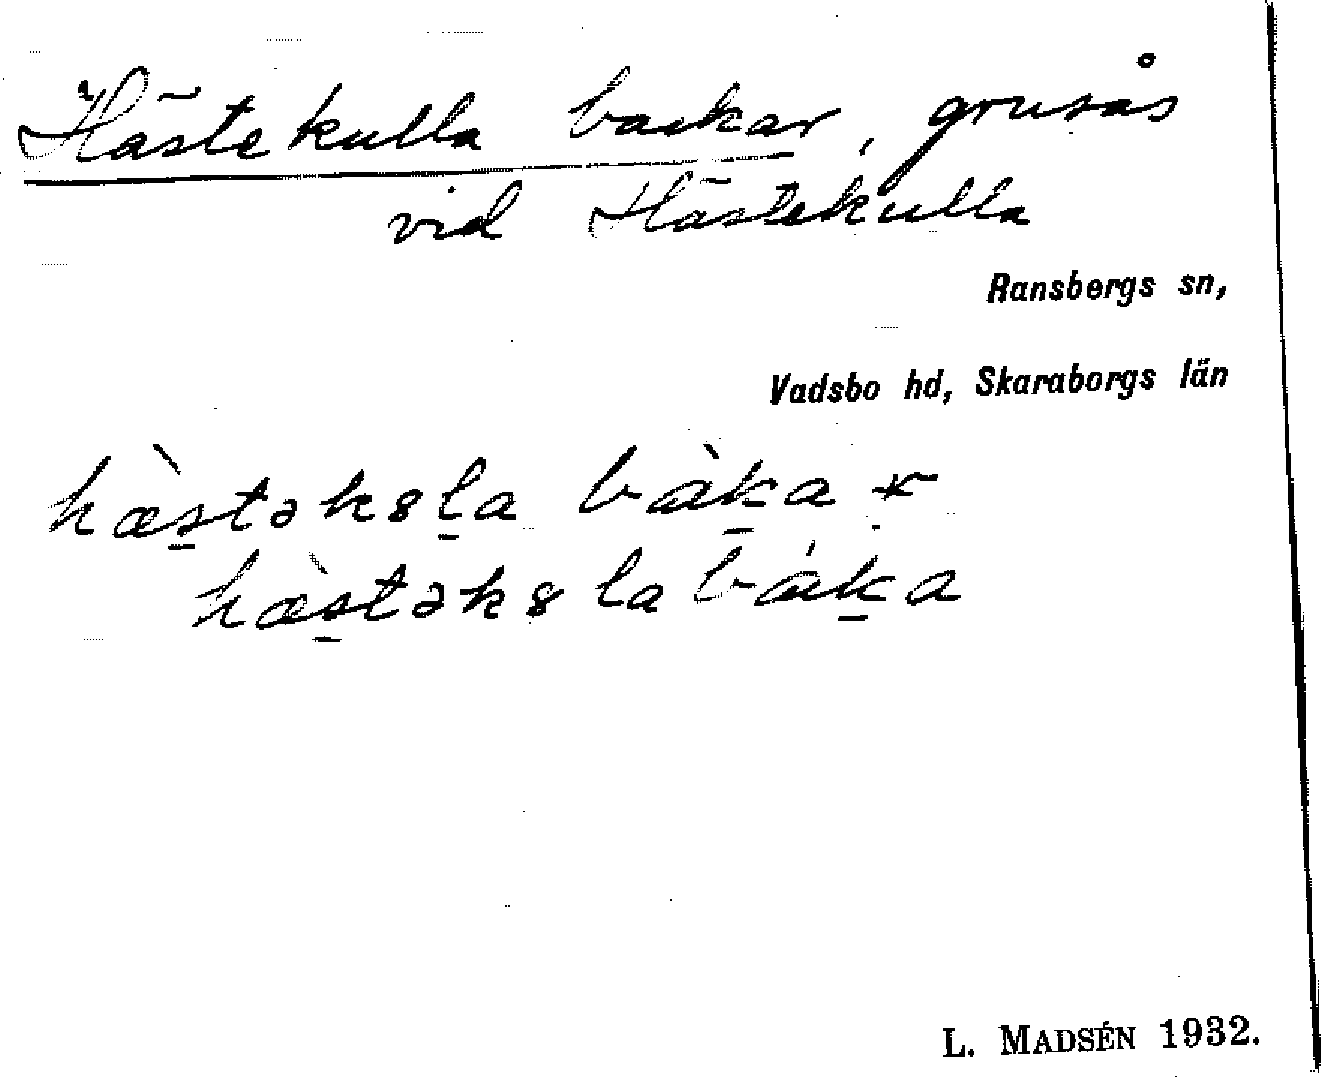 Hästekulla backar, grusås
vid Hästekulla
Ransbergs sn,
Vadsbo hd, Skaraborgs län
hæ̀s̠tək8l̠a bàk̠a *
hæ̀s̠tək8la bák̠a
L. MADSÉN 1932.